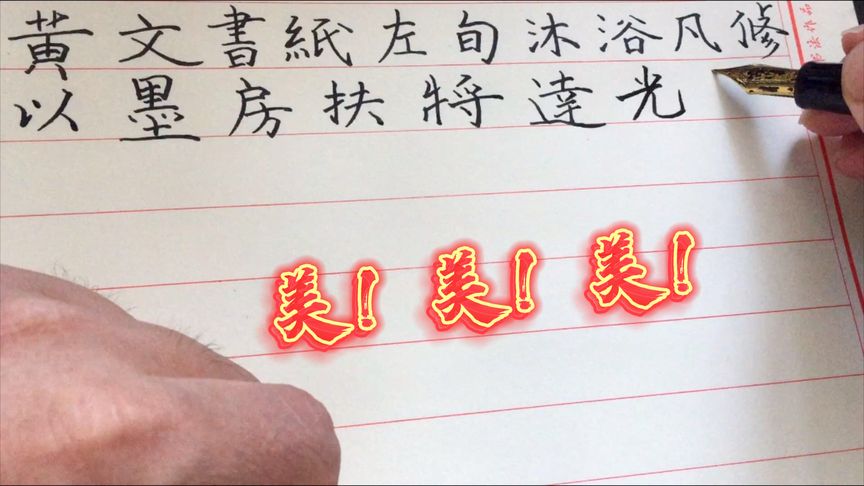 黃文書紙左旬沐浴凡修
以墨房扶將達光
美！美！美！